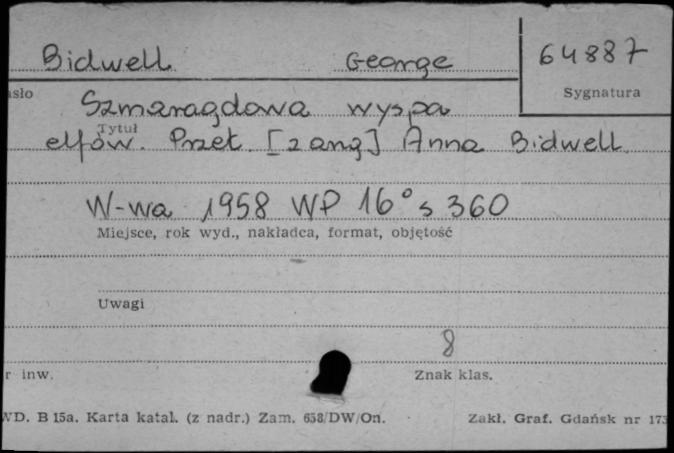 Bidwell George 64887
asło Sygnatura
Szmaragdowa wyspa
Tytuł
elfów. Przeł. [z ang] Anna Bidwell
W-wa 1958 WP 16° s 360
Miejsce, rok wyd., nakładca, format, objętość
Uwagi
8
r inw. Znak klas.
WD. B 15a. Karta katal. (z nadr.) Zam. 658/DW/On. Zakł. Graf. Gdańsk nr 173